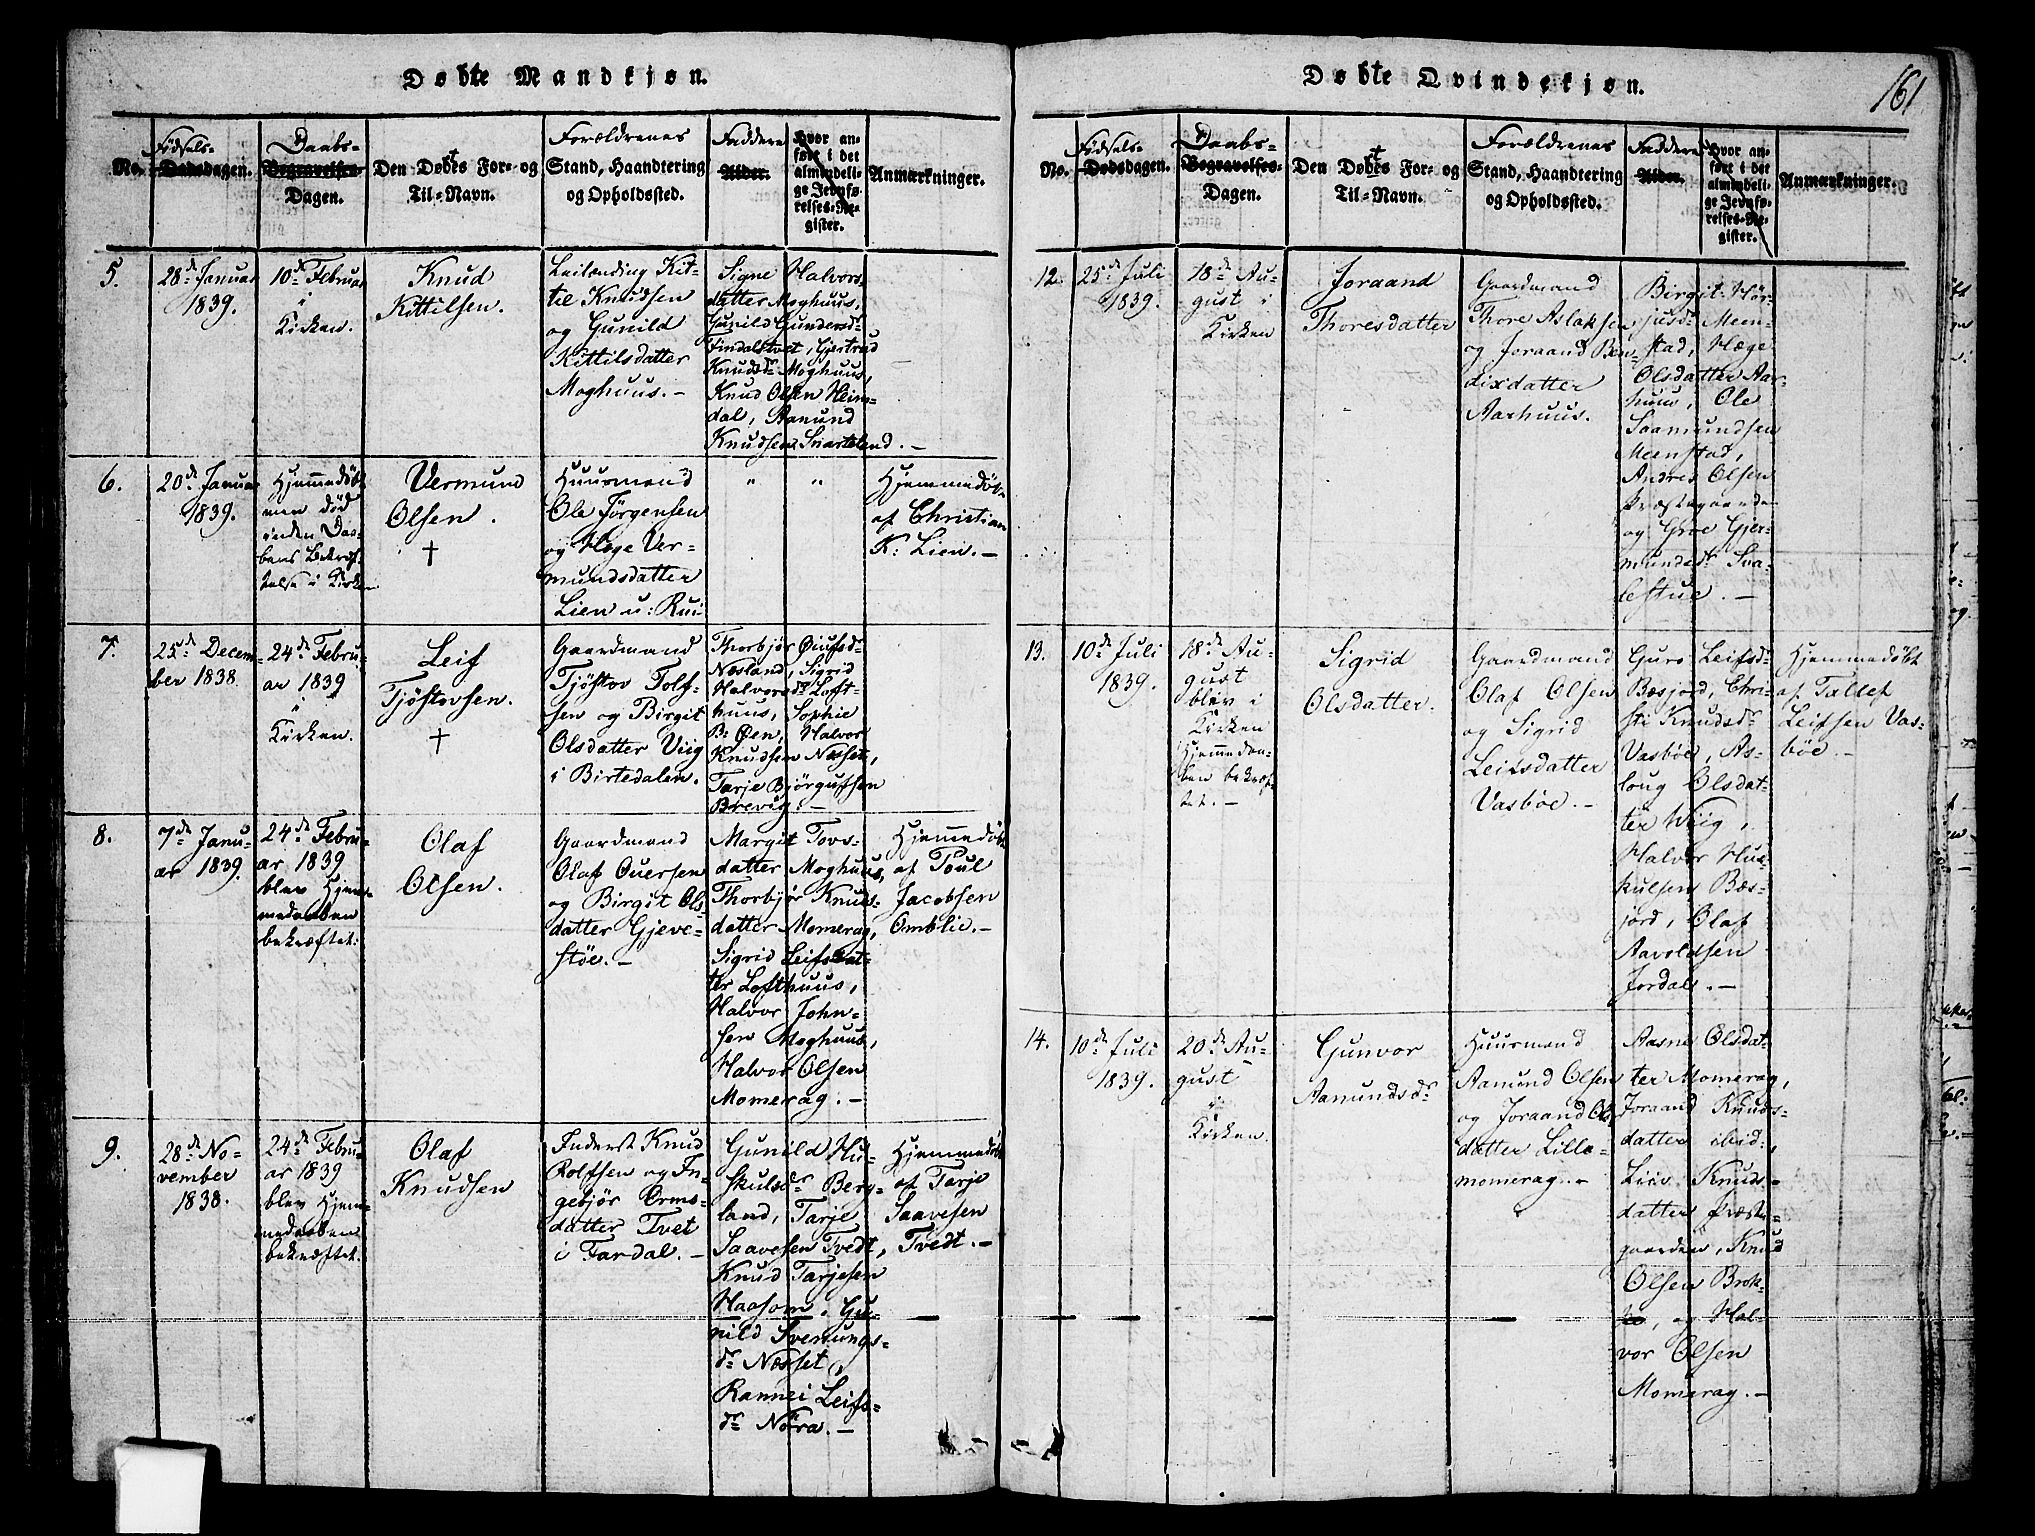 Døbte Mandkjøn.
No.
Fødsels-
Dødsdagen.
Daabs-
Begravelses-
Dagen.
Den Døbtes For- og
Til-Navn.
Forældrenes
Stand, Haandtering
og Opholdssted.
Faddere
Alder.
Hvor an-
ført i det
almindeli-
ge Jevnfø-
relses-Re-
gister.
Anmærkninger.
5.
28de Januar
1839.
10de Februar
i
Kirken.
Knud
Kittilsen.
Leilænding Kit-
til Knudsen
og Gunild
Kittilsdatter
Moghuus.-
Signe Halvors-
datter Moghuus,
Gunild Gundersdr
Findalstvet, Gjertrud
Knudsdr Moghuus,
Knud Olsen Heim-
dal, Aanund
Knudsen Svarteland.-
6.
20de Januar
1839.
Hjemmedöbt
men död
inden Daa-
bens Bekræf-
telse i Kirken
Vermund
Olsen.
†
Huusmand
Ole Jørgensen
og Hæge Ver-
mundsdatter
Lien u: Rui
" "
Hjemmedöbt
af Christian
K: Lien.-
7.
25de Decem-
ber 1838.
24de Febru-
ar 1839
i
Kirken.
Leif
Tjöstovsen.
†
Gaardmand
Tjöstov Tolf-
sen og Birgit
Olsdatter Viig
i Birtedalen.
Thorbjør Øiufsdr
Næsland, Sigrid
Halvorsdr Loft-
huus, Sophie
B: Øen, Halvor
Knudsen Næset,
Tarje Björgufsen
Brevig.-
8.
7de Janu-
ar 1839.
24de Febru-
ar 1839
blev Hjem-
medaaben
bekræftet.
Olaf
Olsen.
Gaardmand
Olaf Ouersen
og Birgit Ols-
datter Gjeve-
stöe.-
Margit Tovs-
datter Moghuus,
Thorbjör Knuds-
datter Momerag,
Sigrid Leifsdat-
ter Lofthuus,
Halvor John-
sen Moghuus,
Halvor Olsen
Momerag.-
Hjemmedöbt
af Poul
Jacobsen
Omblie.-
9.
28de No-
vember
1838.
24de Febru-
ar 1839
blev Hjem-
medaaben
bekræftet.
Olaf
Knudsen
Inderst Knud
Rolfsen og In-
gebjør Orms-
datter Tvet
i Fardal.-
Gunild Hu-
skulsdr Berg-
land, Tarje
Saavesen Tvedt,
Knud Tarjesen
Haasom, Gu-
nild Svenungs-
dr Næsset,
Rannei Leifs-
dr Nöra.-
Hjemmedöbt
af Tarje
Saavesen
Tvedt.-
Døbte Qvindekjøn.
161
No.
Fødsels-
Dødsdagen.
Daabs-
Begravelses-
Dagen.
Den Døbtes For- og
Til-Navn.
Forældrenes
Stand, Haandtering
og Opholdssted.
Faddere
Alder.
Hvor an-
ført i det
almindeli-
ge Jevnfø-
relses-Re-
gister.
Anmærkninger.
12.
25de Juli
1839.
18de Au-
gust i
Kirken
Joraand
Thoresdatter
Gaardmand
Thore Aslaksen
og Joraand Ben-
dixdatter
Aarhuus.
Birgit Hør-
jusdr Meen-
stad, Hæge
Olsdatter Aar-
huus, Ole
Saamundsen
Meenstad,
Andres Olsen
Præstegaarden
og Groe Gjer-
mundsdr Sva-
lestue.-
13.
10de Juli
1839.
18de Au-
gust
blev i
Kirken
Hjemmedaa-
ben bekræf-
tet.-
Sigrid
Olsdatter.
Gaardmand
Olaf Olsen
og Sigrid
Leifsdatter
Vasböe.-
Guro Leifsdr
Bæsjord, Chri-
sti Knudsdr
Vasböe, As-
loug Olsdat-
ter Wiig,
Halvor Hus-
kulsen Bæs-
jord, Olaf
Aavoldsen
Jordal.-
Hjemmedöbt
af Tallef
Leifsen Vas-
böe.-
14.
10de Juli
1839.
20de Au-
gust
i
Kirken.
Gunvor
Aanundsdr
Huusmand
Aanund Olsen
og Joraand Ols-
datter Lille-
momerag.-
Aasne Olsdat-
ter Momerag,
Joraand Knuds-
datter ibid:,
Liiv Knuds-
datter Præste-
gaarden, Knud
Olsen Brok-
ke, og Hal-
vor Olsen
Momerag.-